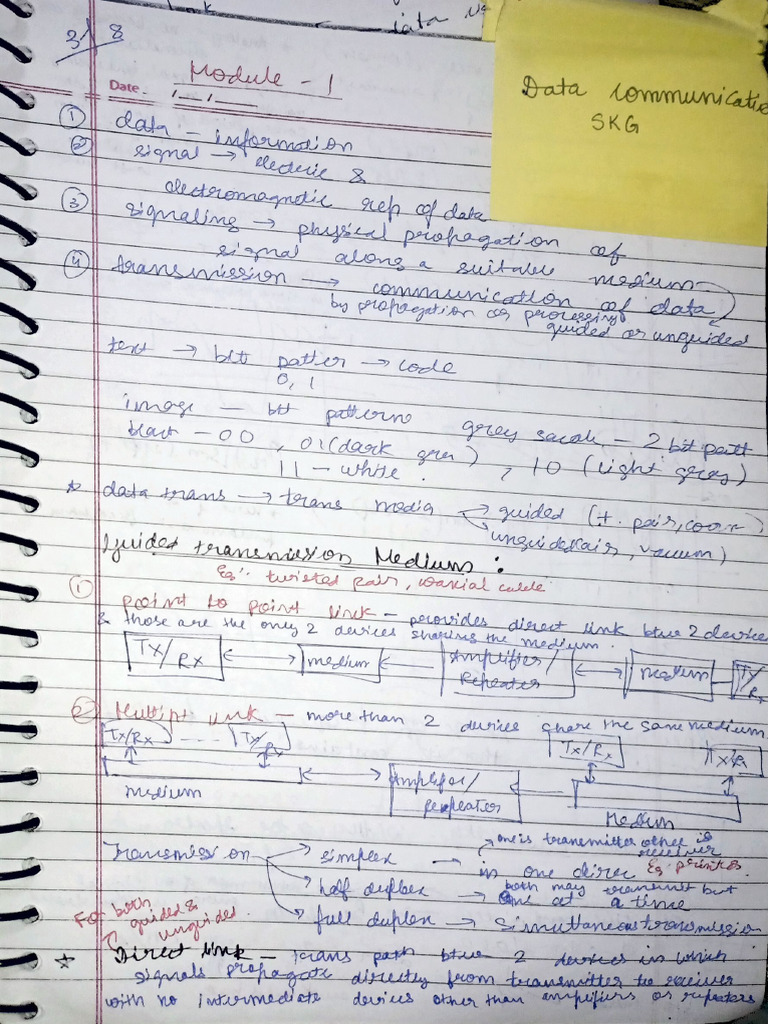 data
3/8
Module - 1
Date.
Data communicatio
SKG
① data - information
② signal → electric &
electromagnetic rep of data
③ signaling → physical propagation of
signal along a suitable medium
④ transmission → communication of data
by propagation or processing
guided or unguided
text → bit patter → code
0, 1
image - bit patterns grey scale - 2 bit patt
black - 00 , 01 (dark grey) , 10 (light grey)
11 - white .
* data trans → trans media → guided (t. pair, coax)
unguided (air, vacuum)
guided transmission Medium :
Eg:- twisted pair, coaxial cable
① point to point link - provides direct link btw 2 device
& those are the only 2 devices sharing the medium.
Tx/Rx medium Amplifier/ medium Tx/
Repeater Rx
② Multipt link - more than 2 devices share the same medium.
Tx/Rx ---- Tx/Rx Tx/Rx Tx/R
medium Amplifier/ Medium
repeater
one is transmitter other is
receiver
Transmission → simplex → in one direc Eg: printers.
half duplex → both may transmit but
one at a time
full duplex → simultaneous transmission
For both
guided &
unguided.
* Direct link - trans path btw 2 devices in which
signals propagate directly from transmitter to receiver
with no intermediate devices other than amplifiers or repeaters